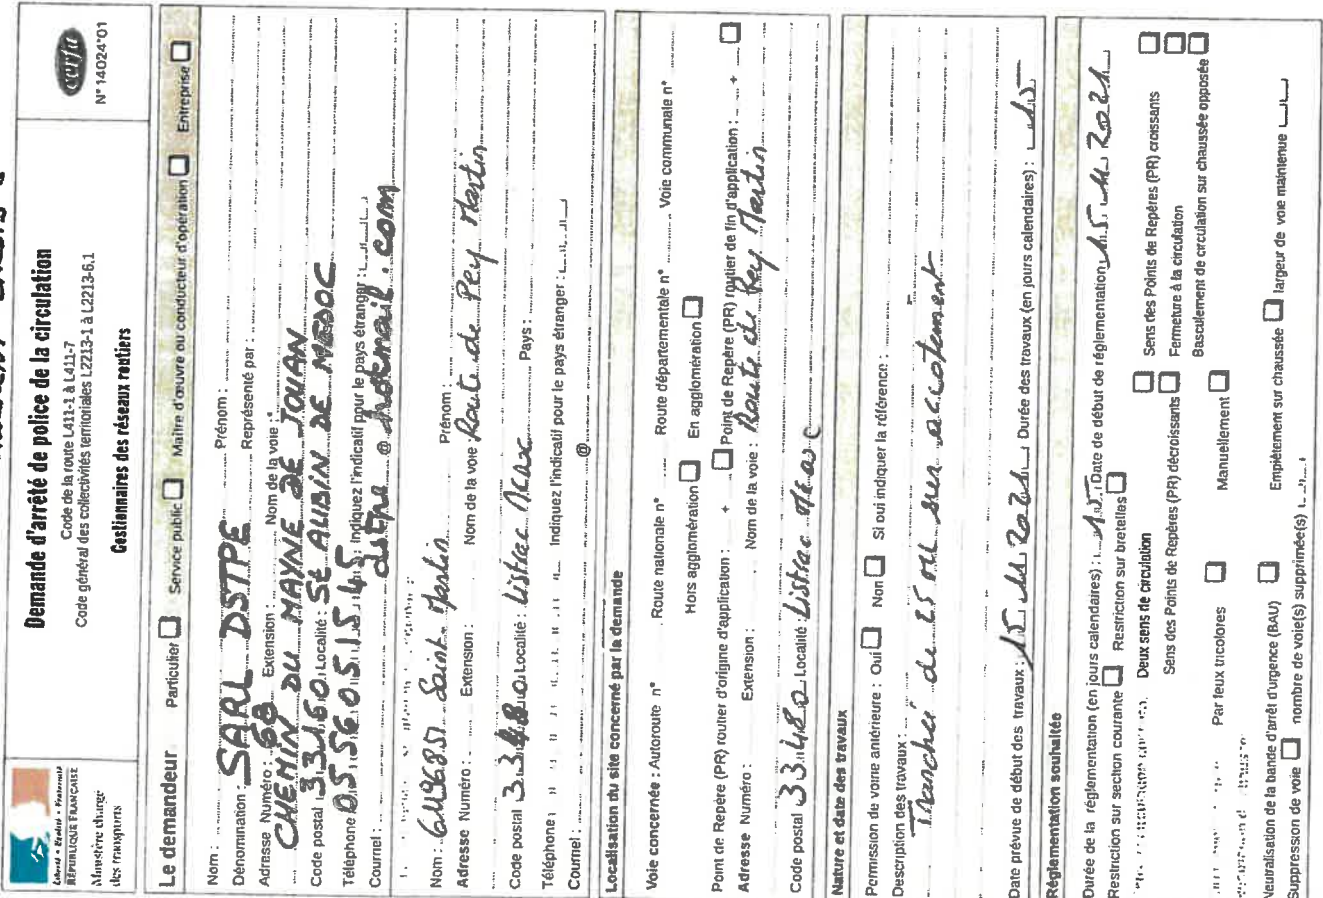 Liberté • Égalité • Fraternité
RÉPUBLIQUE FRANÇAISE
Ministère chargé
des transports
Demande d'arrêté de police de la circulation
Code de la route L411-1 à L411-7
Code général des collectivités territoriales L2213-1 à L2213-6.1
Gestionnaires des réseaux routiers
cerfa
N° 14024*01
Le demandeur
Particulier Service public Maître d'œuvre ou conducteur d'opération Entreprise
Nom : Prénom :
Dénomination : SARL DSTPE Représenté par :
Adresse Numéro : 68 Extension : Nom de la voie :
CHEMIN DU MAYNE DE JOUAN
Code postal 33160 Localité : St AUBIN DE MEDOC
Téléphone 0556051545 Indiquez l'indicatif pour le pays étranger :
Courriel : @ hotmail.com
Nom : Saint Martin Prénom :
Adresse Numéro : Extension : Nom de la voie : Route de Pey Martin
Code postal 33480 Localité : Listrac Pays :
Téléphone Indiquez l'indicatif pour le pays étranger :
Courriel : @
Localisation du site concerné par la demande
Voie concernée : Autoroute n° Route nationale n° Route départementale n° Voie communale n°
Hors agglomération En agglomération
Point de Repère (PR) routier d'origine d'application : + Point de Repère (PR) routier de fin d'application : +
Adresse Numéro : Extension : Nom de la voie : Route de Pey Martin
Code postal 33480 Localité : Listrac
Nature et date des travaux
Permission de voirie antérieure : Oui Non Si oui indiquer la référence :
Description des travaux :
de 25 ml sur accotement
Date prévue de début des travaux : 15 2021 Durée des travaux (en jours calendaires) : 15
Réglementation souhaitée
Durée de la réglementation (en jours calendaires) : 15 Date de début de réglementation 15 2021
Restriction sur section courante Restriction sur bretelles
Deux sens de circulation Sens des Points de Repères (PR) croissants
Sens des Points de Repères (PR) décroissants Fermeture à la circulation
Basculement de circulation sur chaussée opposée
Par feux tricolores Manuellement
Neutralisation de la bande d'arrêt d'urgence (BAU) Empiètement sur chaussée largeur de voie maintenue
Suppression de voie nombre de voie(s) supprimée(s)